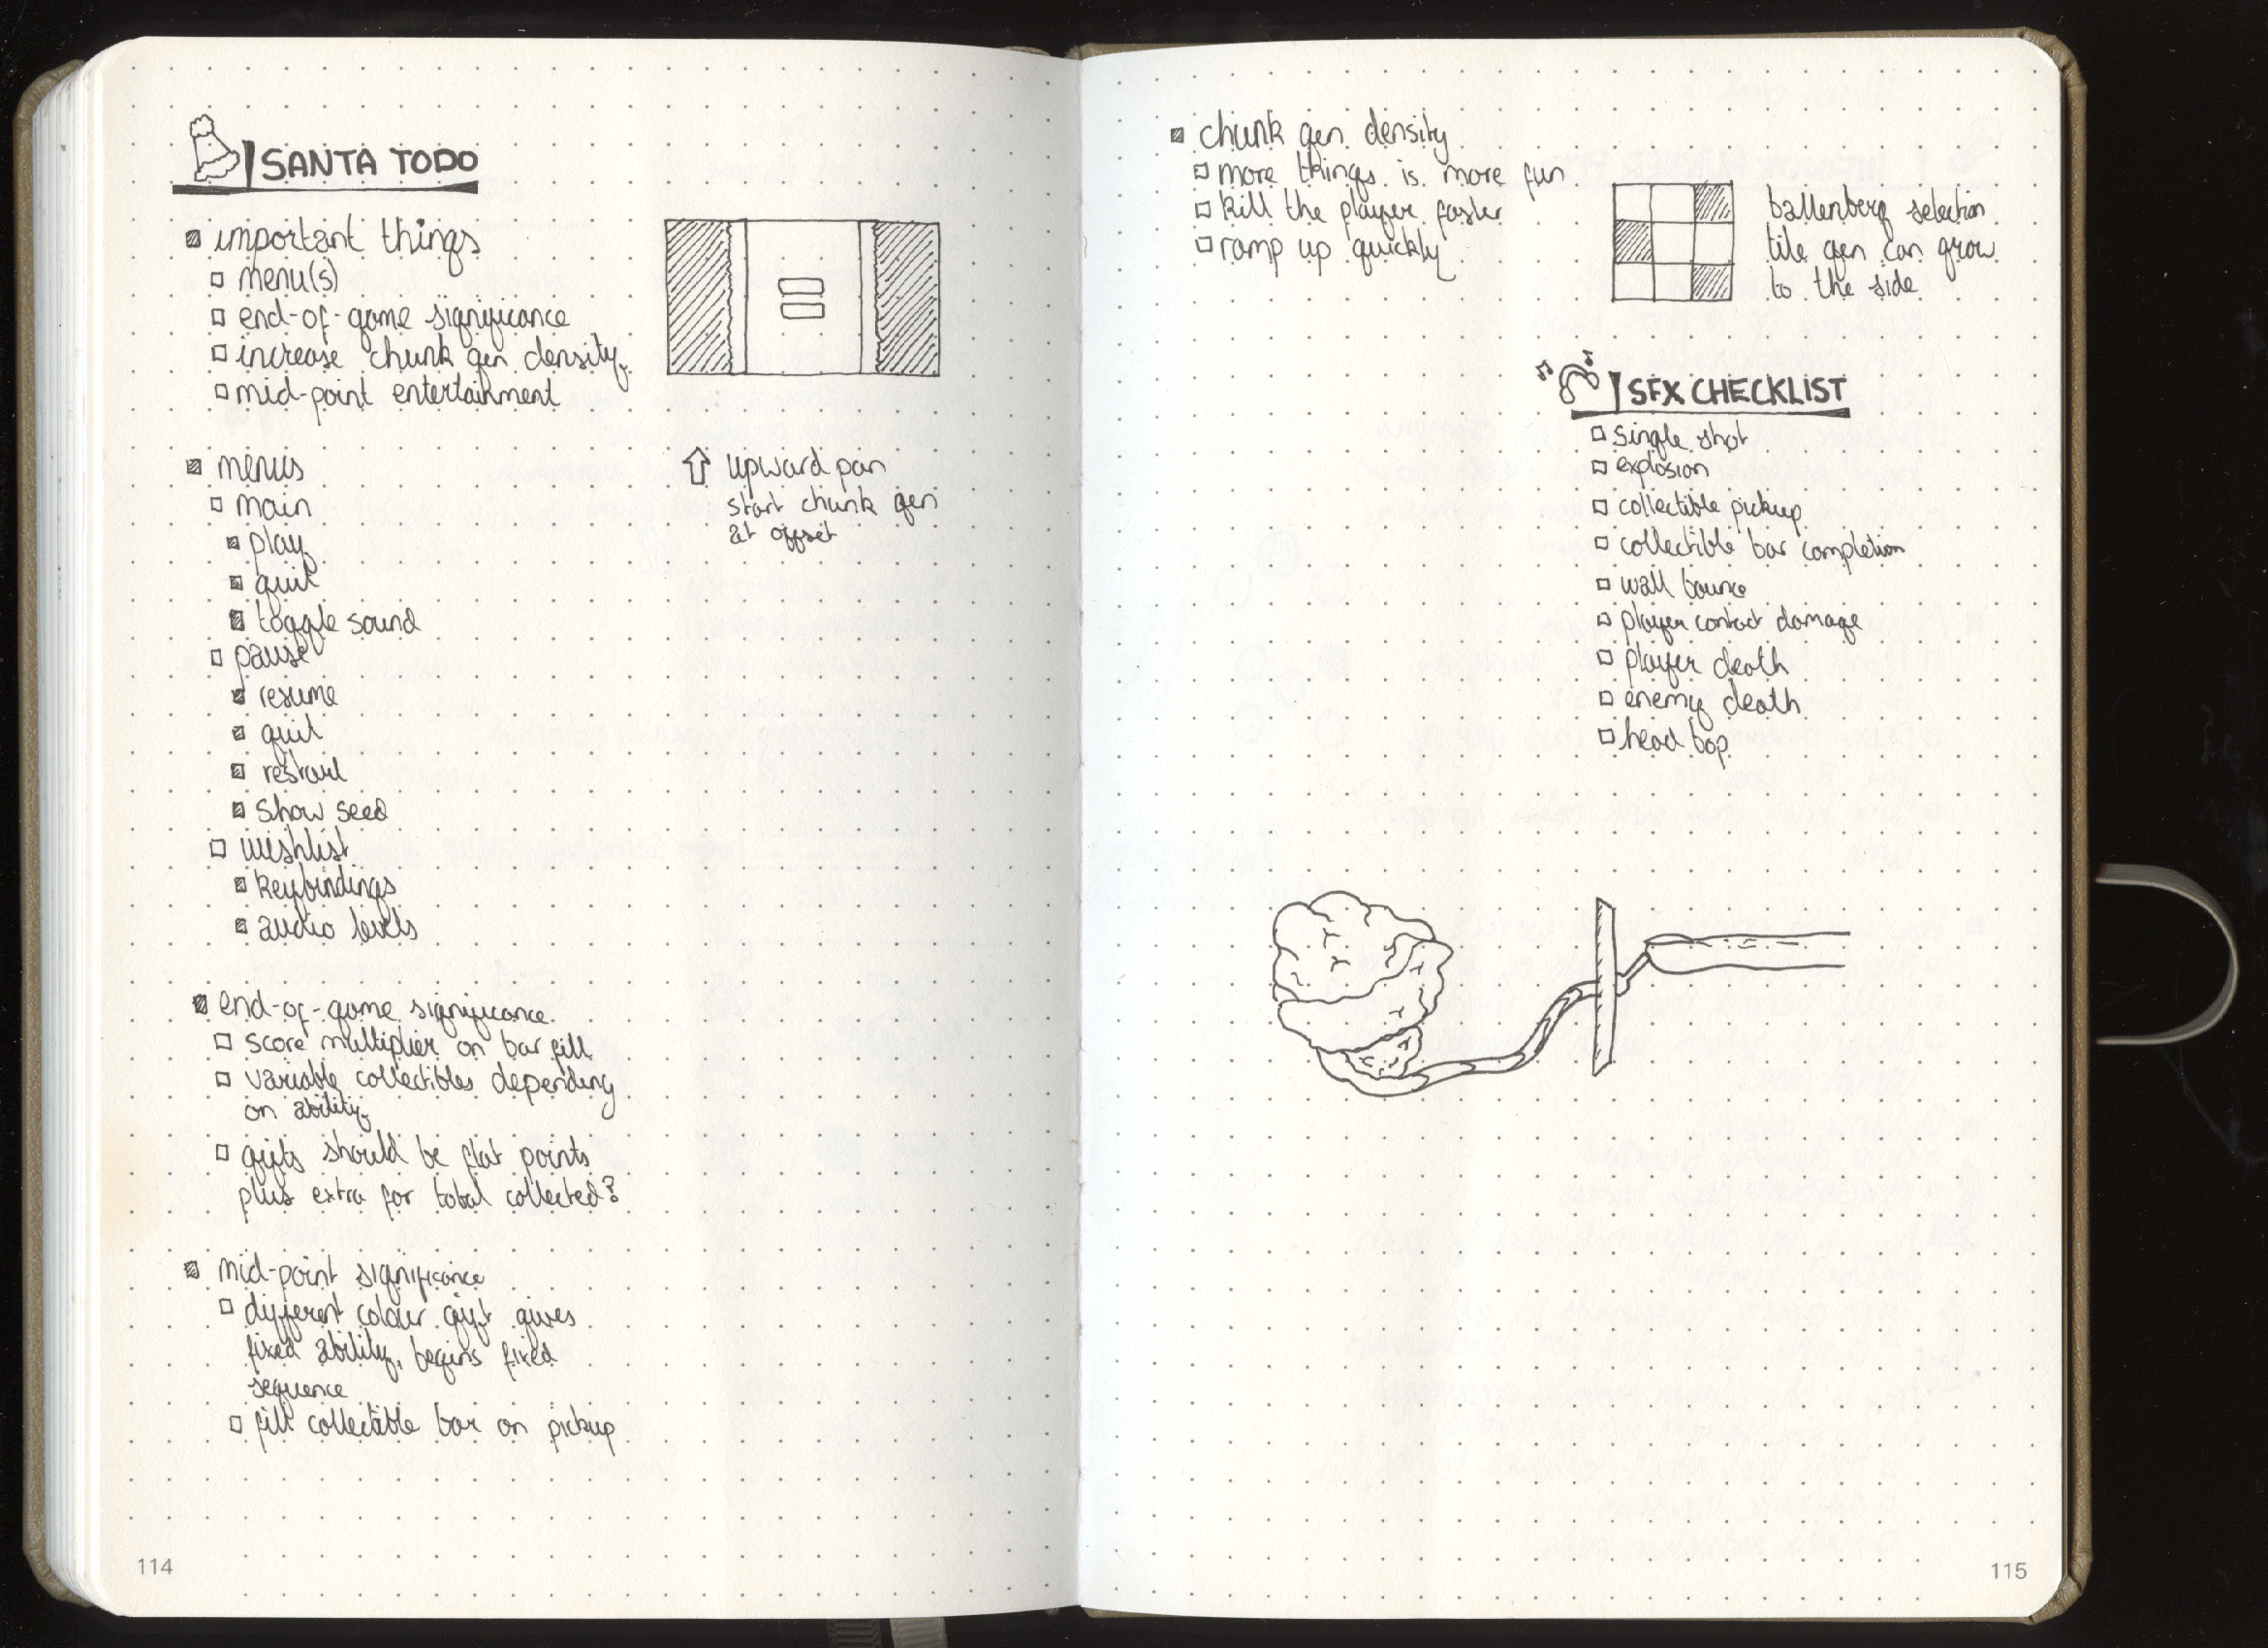 SANTA TODO
important things
menu(s)
end-of-game significance
increase chunk gen density
mid-point entertainment
menus
main
play
quit
toggle sound
pause
resume
quit
restart
show seed
wishlist
keybindings
audio levels
end-of-game significance
score multiplier on bar fill
variable collectibles depending
on ability
gifts should be flat points
plus extra for total collected?
mid-point significance
different colour gift gives
fixed ability, begins fixed
sequence
fill collectable bar on pickup
upward pan
start chunk gen
at offset
114
chunk gen density
more things is more fun
kill the player faster
ramp up quickly
selection
tile gen can grow
to the side
SFX CHECKLIST
single shot
explosion
collectible pickup
collectible bar completion
wall bounce
player contact damage
player death
enemy death
head bop
115